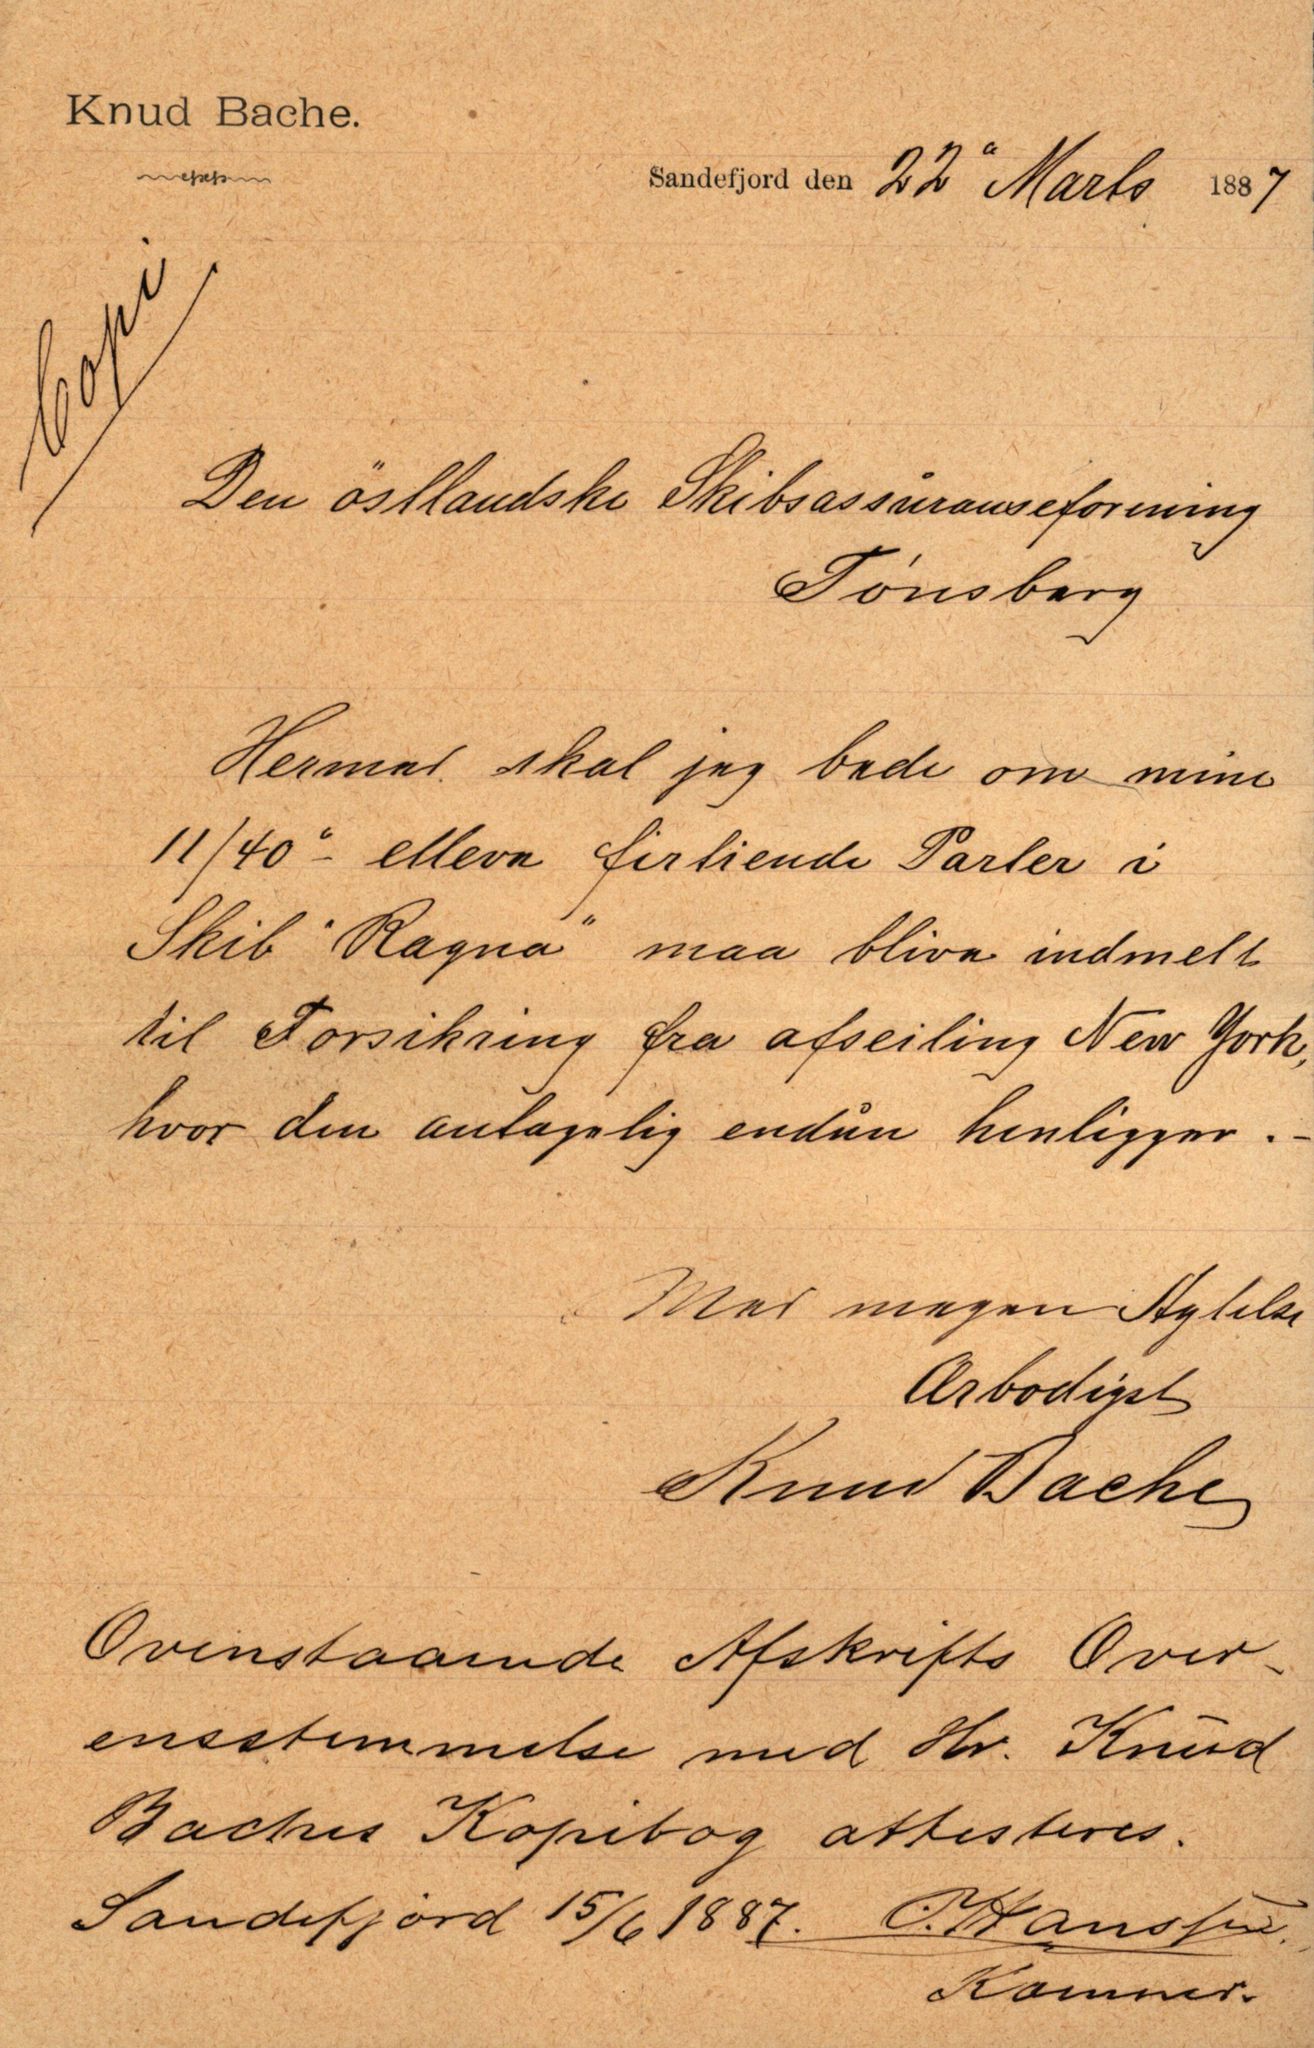 Knud Bache.
Sandefjord den 22ª Marts 1887
Copi
Den östlandske Skibsassüranseforening
Tönsberg
Hermed skal jeg bede om mine
11/40° - elleve firtiende Parter i
Skib "Ragna" maa blive indmeldt
til Forsikring fra afseiling New York,
hvor den antagelig endün henligger. -
Med megen Agtelse
Ærbodigst
Knud Bache
Ovenstaaende Afskrifts Over-
ensstemmelse med Hr. Knud
Baches Kopibog attesteres.
Sandefjord 15/6 1887. C. Hanssen.